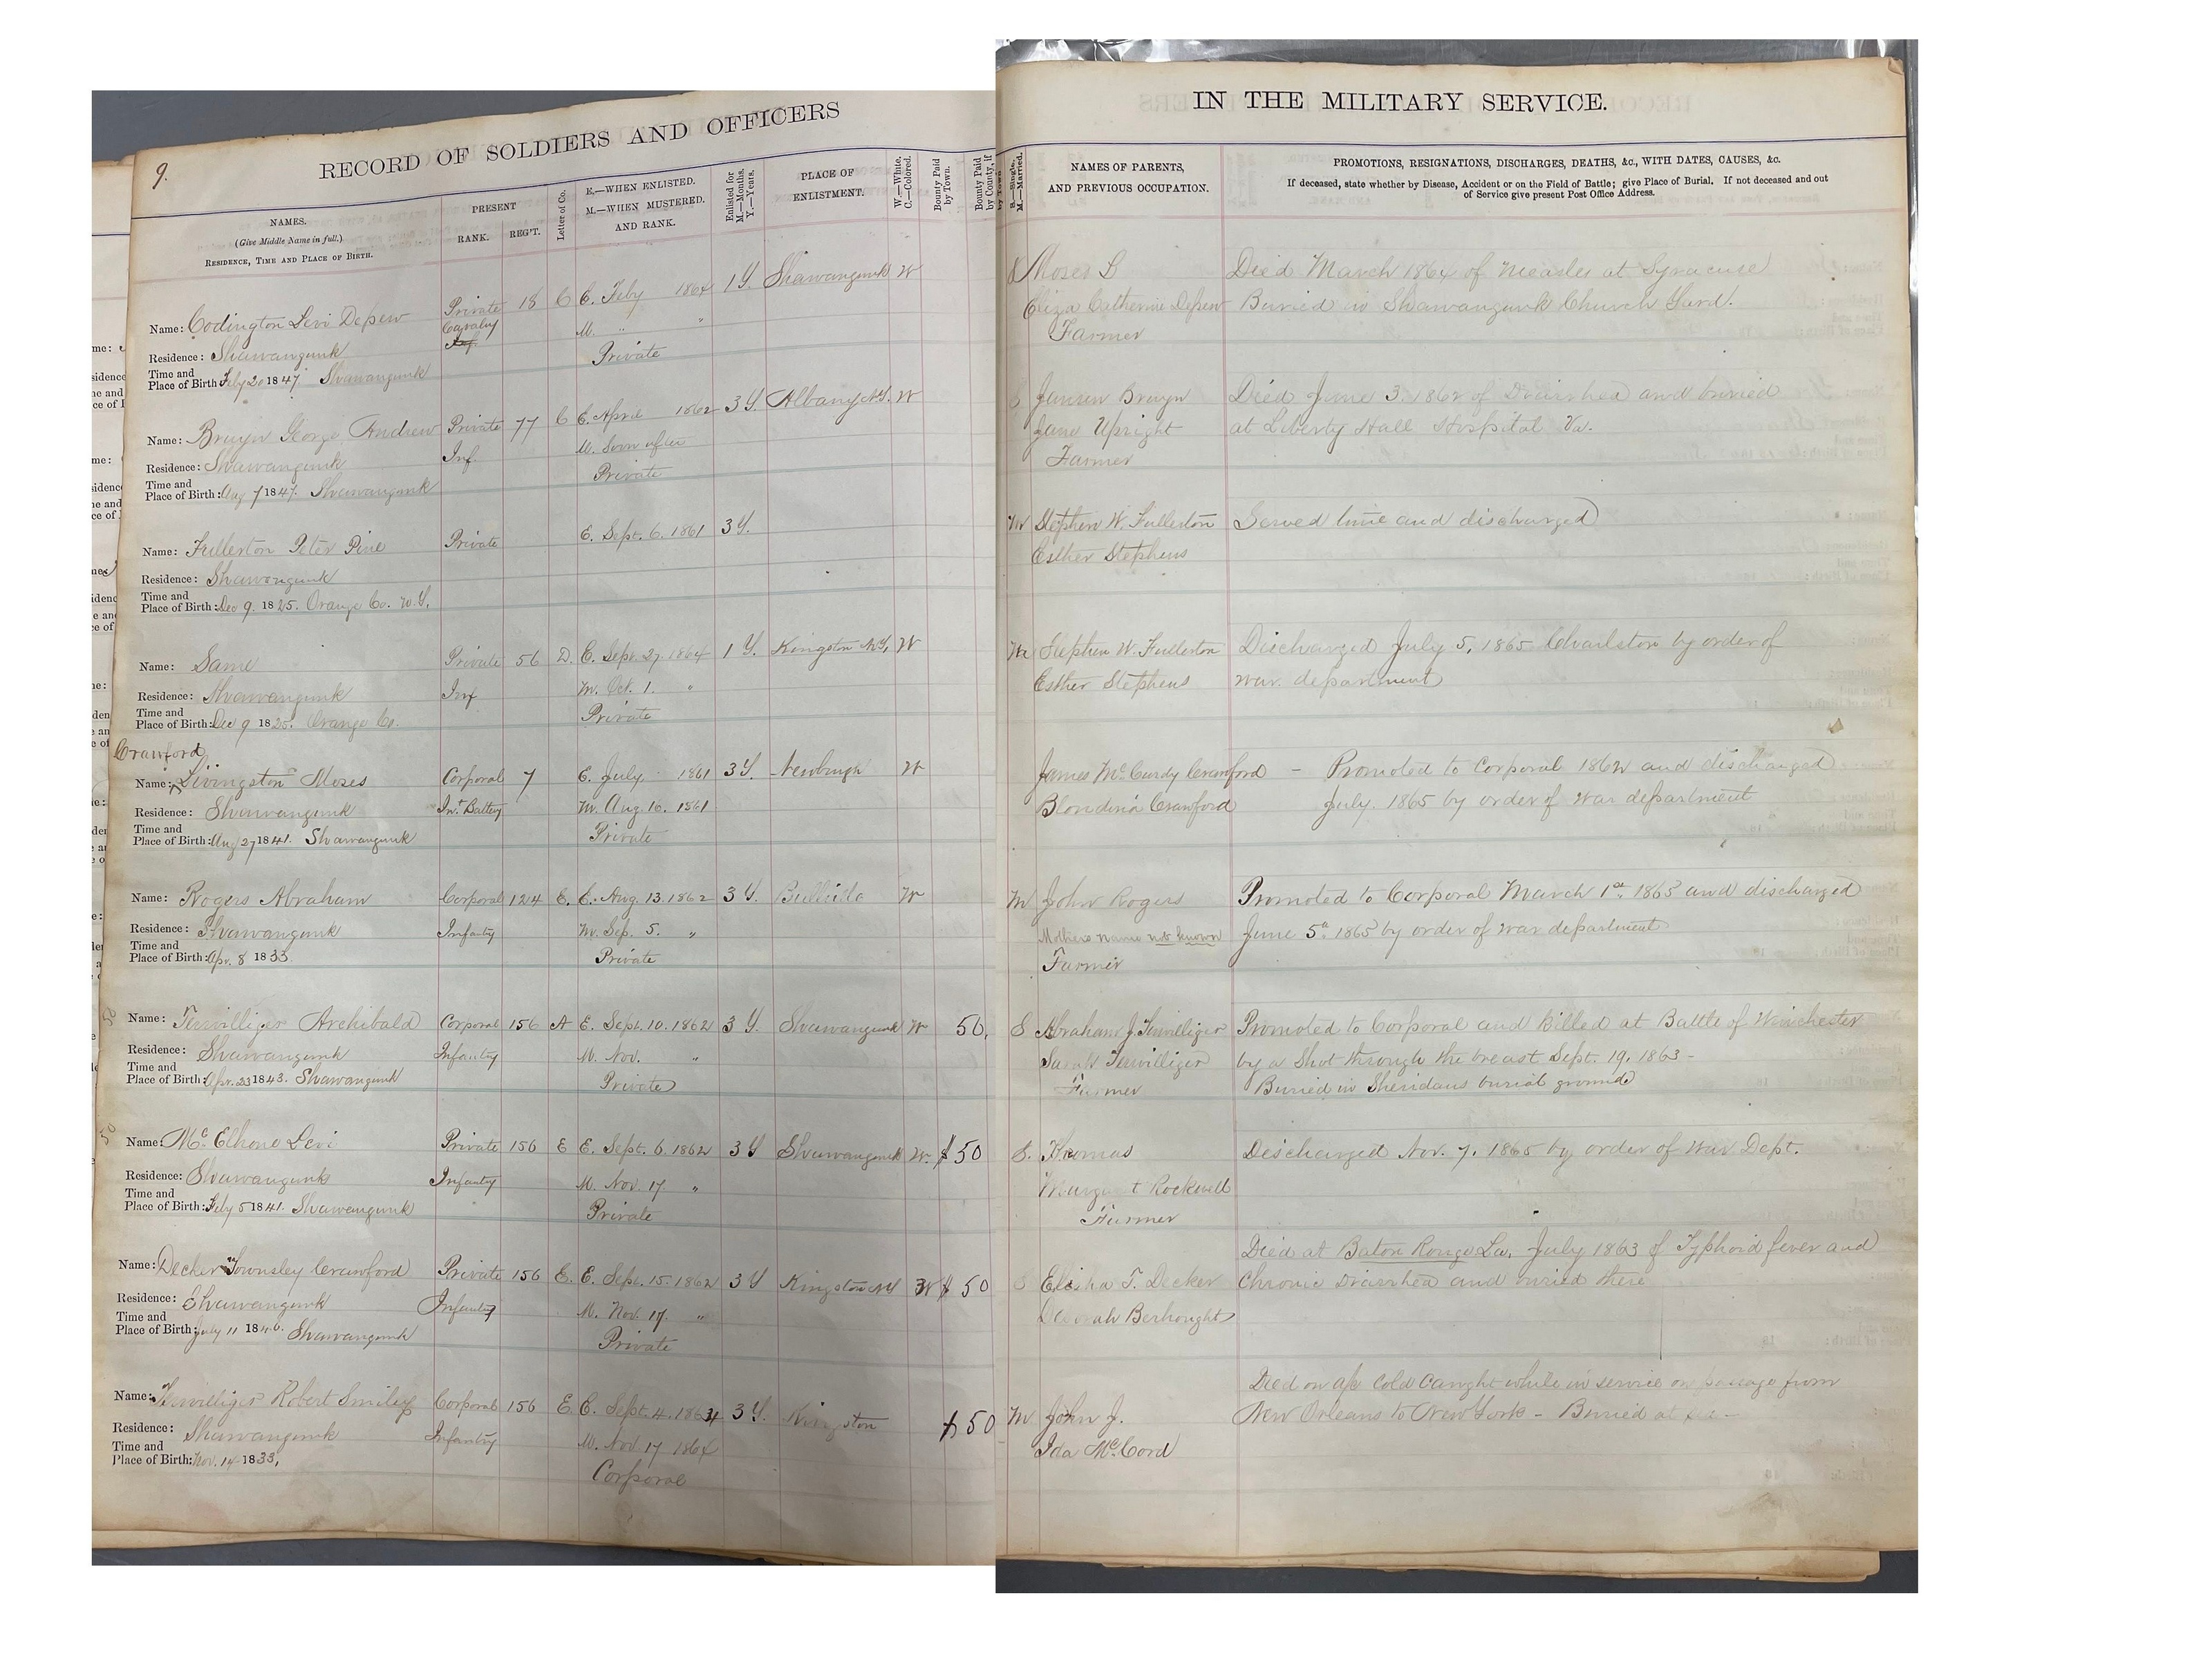 9.
RECORD OF SOLDIERS AND OFFICERS
NAMES.
(Give Middle Name in full.)
RESIDENCE, TIME AND PLACE OF BIRTH.
PRESENT
RANK.
REG'T.
Letter of Co.
E.—WHEN ENLISTED.
M.—WHEN MUSTERED.
AND RANK.
Enlisted for
M.—Months.
Y.—Years.
PLACE OF
ENLISTMENT.
W.—White.
C.—Colored.
Bounty Paid
by Town.
Bounty Paid
by County, if
Name: Codington Levi Depew Private 18 C E. Feby 1864 1 Y. Shawangunk W
Cavalry M. " "
Residence: Shawangunk Private
Time and
Place of Birth Feby 20 1847. Shawangunk
Name: Bruyn George Andrew Private 77 C E. April 1862 3 Y. Albany N.Y. W
Residence: Shawangunk Inf. M. Soon after
Time and Private
Place of Birth: Aug 7 1847. Shawangunk
Name: Fullerton Peter Pine Private E. Sept. 6. 1861 3 Y.
Residence: Shawangunk
Time and
Place of Birth: Dec 9. 1825. Orange Co. N.Y.
Name: Same Private 56 D. E. Sept. 27. 1864 1 Y. Kingston N.Y. W
Residence: Shawangunk Inf M. Oct. 1. "
Time and Private
Place of Birth: Dec 9 1825. Orange Co.
Crawford
Name: Livingston Moses Corporal 7 E. July 1861 3 Y. Newburgh W
Residence: Shawangunk Int. Battery M. Aug. 16. 1861
Time and Private
Place of Birth: Aug 27 1841. Shawangunk
Name: Rogers Abraham Corporal 124 E. E. Aug. 13. 1862 3 Y. W
Residence: Shawangunk Infantry M. Sep. 5. "
Time and Private
Place of Birth: Apr. 8 1833.
Name: Terwilliger Archibald Corporal 156 A E. Sept. 10. 1862 3 Y. Shawangunk W 50.
Residence: Shawangunk Infantry M. Nov. "
Time and Private
Place of Birth: Apr. 23 1843. Shawangunk
50
Name: Mc Elhone Levi Private 156 E E. Sept. 6. 1862 3 Y Shawangunk W. $50
Residence: Shawangunk Infantry M. Nov. 17 "
Time and Private
Place of Birth: Feby 5 1841. Shawangunk
Name: Decker Townsley Crawford Private 156 E. E. Sept. 15. 1862 3 Y Kingston NY W $50
Residence: Shawangunk Infantry M. Nov. 17. "
Time and Private
Place of Birth: July 11 1846. Shawangunk
Name: Terwilliger Robert Smiley Corporal 156 E. E. Sept. 4. 1864 3 Y. Kingston $50
Residence: Shawangunk Infantry M. Nov 17 1864
Time and Corporal
Place of Birth: Nov. 14 1833,
IN THE MILITARY SERVICE.
S.—Single.
M.—Married.
NAMES OF PARENTS,
AND PREVIOUS OCCUPATION.
PROMOTIONS, RESIGNATIONS, DISCHARGES, DEATHS, &c., WITH DATES, CAUSES, &c.
If deceased, state whether by Disease, Accident or on the Field of Battle; give Place of Burial. If not deceased and out
of Service give present Post Office Address.
Moses D Died March 1864 of Measles at Syracuse
Eliza Catherine Depew Buried in Shawangunk Church Yard.
Farmer
S Jansen Bruyn Died June 3. 1862 of Diarrhea and buried
Jane Upright at Liberty Hall Hospital Va.
Farmer
M Stephen W. Fullerton Served time and discharged
Esther Stephens
M Stephen W. Fullerton Discharged July 5, 1865 Charlston by order of
Esther Stephens war department
James McCurdy Crawford – Promoted to Corporal 1862 and discharged
Blondina Crawford July. 1865 by order of war department
M John Rogers Promoted to Corporal March 1st. 1863 and discharged
Mothers name not known June 5th 1865 by order of war department
Farmer
S Abraham J. Terwilliger Promoted to Corporal and killed at Battle of Winchester
Sarah Terwilliger by a Shot through the breast Sept. 19. 1863 –
Farmer Buried in Sheridans burial ground
S. Thomas Discharged Nov. 7. 1865 by order of War Dept.
Margaret Rockwell
Farmer
Died at Baton Rouge La. July 1863 of Typhoid fever and
S Elisha T. Decker Chronic Diarrhea and buried there
Deborah Berhought
Died on a/c cold caught while in service on passage from
M John J. New Orleans to New York – Buried at sea –
Ida McCord